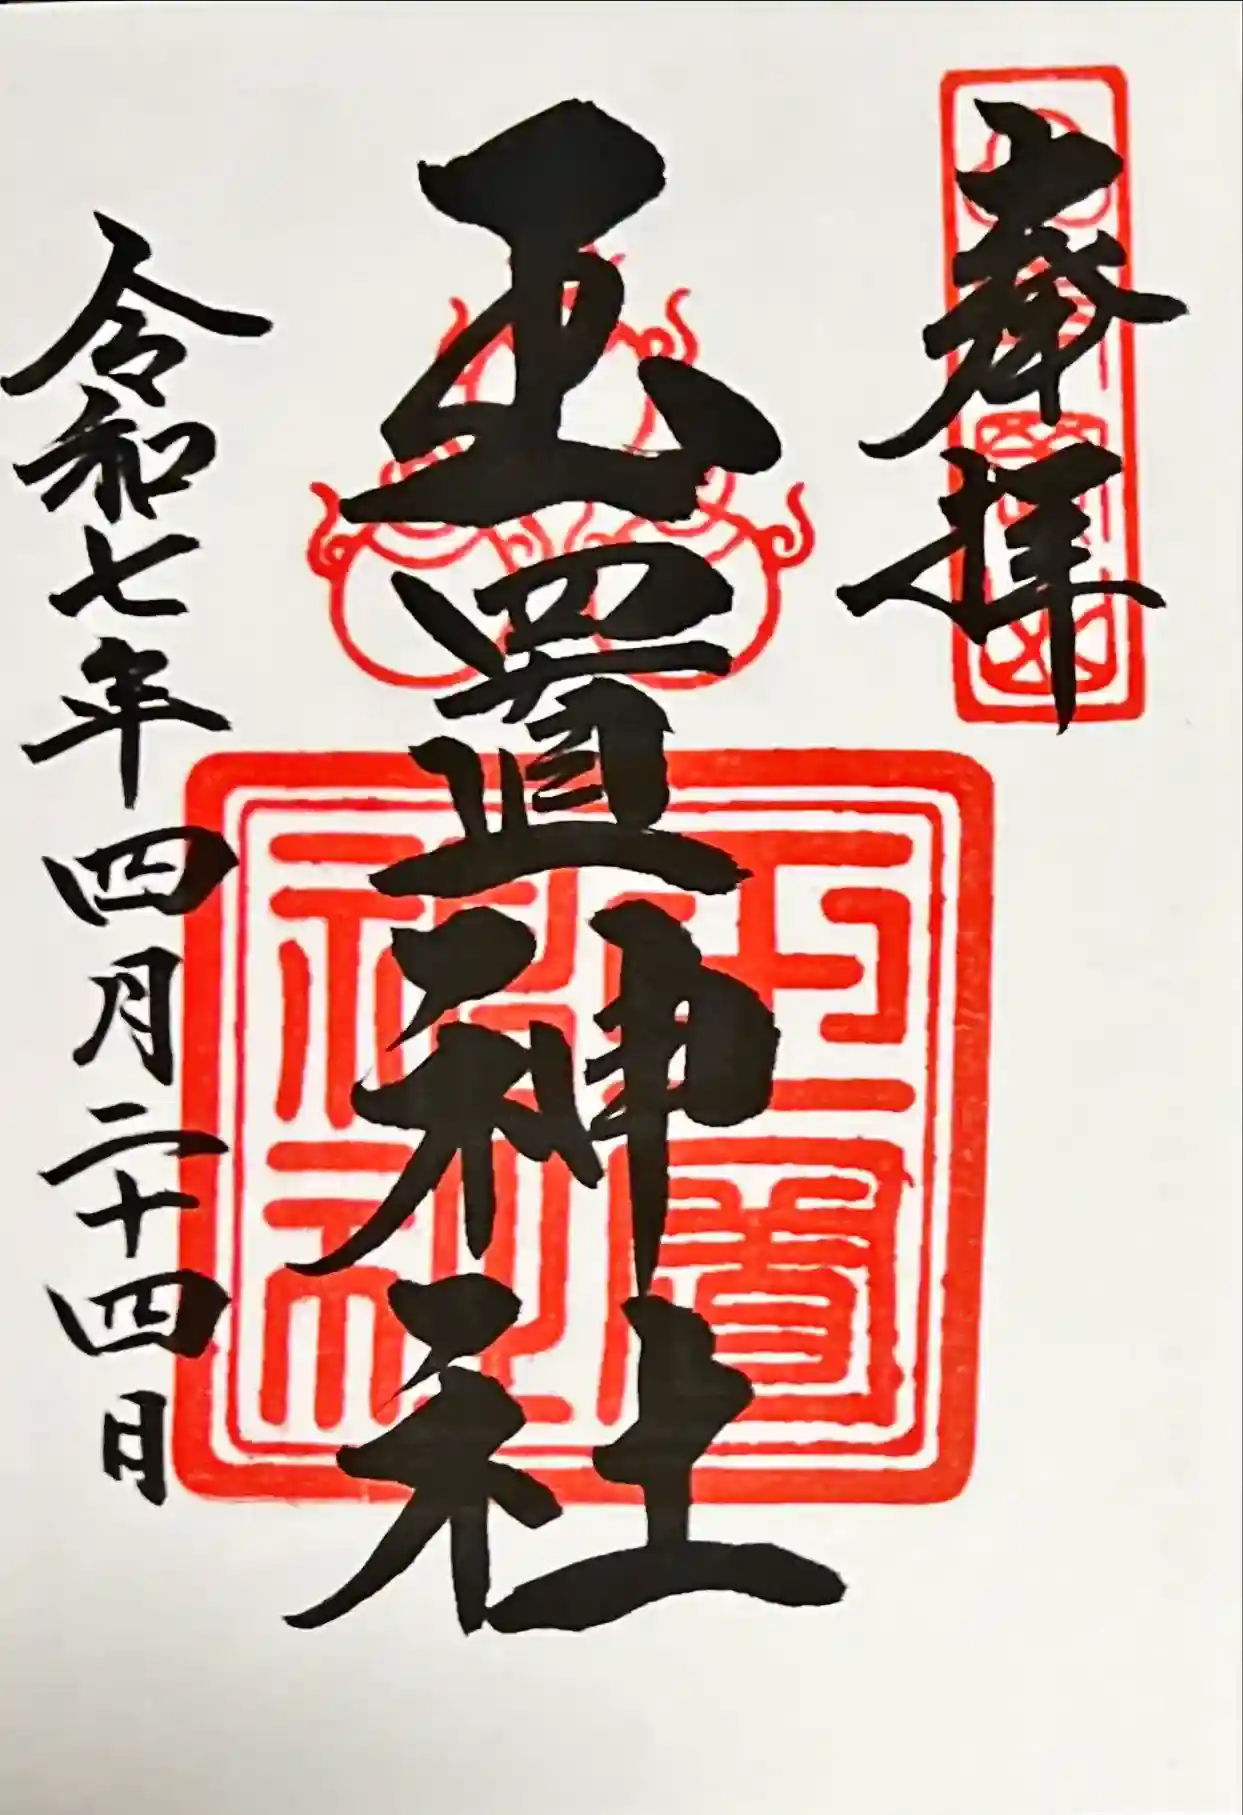 奉拝
玉置神社
玉置神社
令和七年四月二十四日